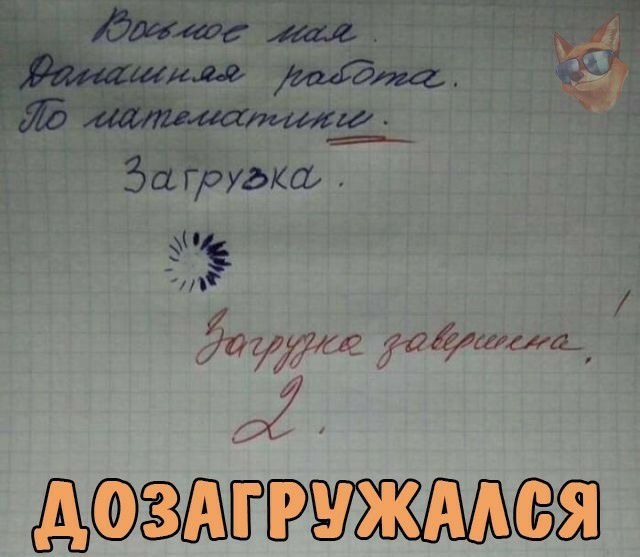 Восьмое мая.
Домашняя работа.
По математики.
Загрузка.
Загрузка завершена!
2.
ДОЗАГРУЖАЛСЯ